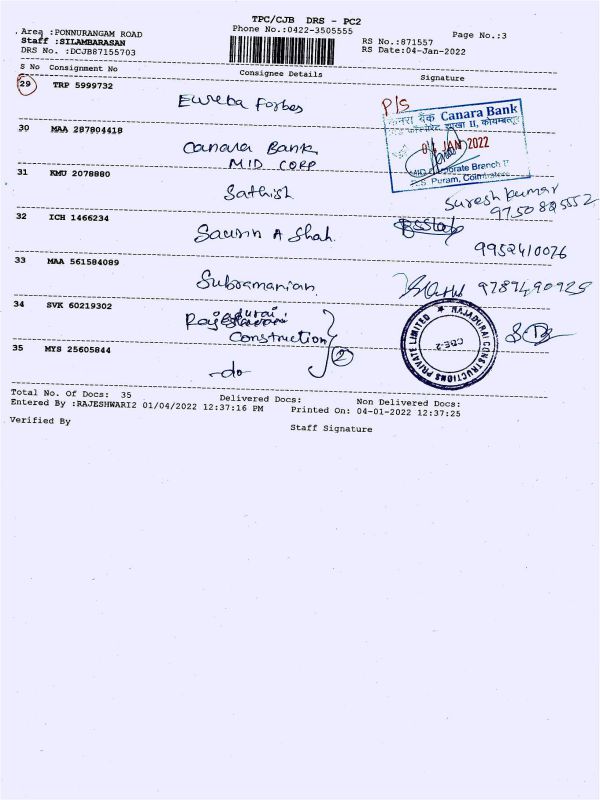 TPC/CJB DRS - PC2
Area :PONNURANGAM ROAD
Phone No.:0422-3505555
Page No.:3
Staff :SILAMBARASAN
RS No.:871557
DRS No. :DCJB87155703
RS Date:04-Jan-2022
S No Consignment No
Consignee Details
Signature
29 TRP 5999732
Eureka Forbes
P/S
केनरा बैंक Canara Bank
30 MAA 287804418
Canara Bank
MID CORP
04 JAN 2022
MID Corporate Branch II
R.S. Puram, Coimbatore
31 KMU 2078880
Sathish
Suresh kumar
32 ICH 1466234
Saurin A Shah.
9952410026
33 MAA 561584089
Subramanian
9789490925
34 SVK 60219302
Construction
RAJADHURAI CONSTRUCTIONS PRIVATE LIMITED
CBE-2
35 MYS 25605844
-do
2
Total No. Of Docs: 35
Delivered Docs:
Non Delivered Docs:
Entered By :RAJESHWARI2 01/04/2022 12:37:16 PM
Printed On: 04-01-2022 12:37:25
Verified By
Staff Signature